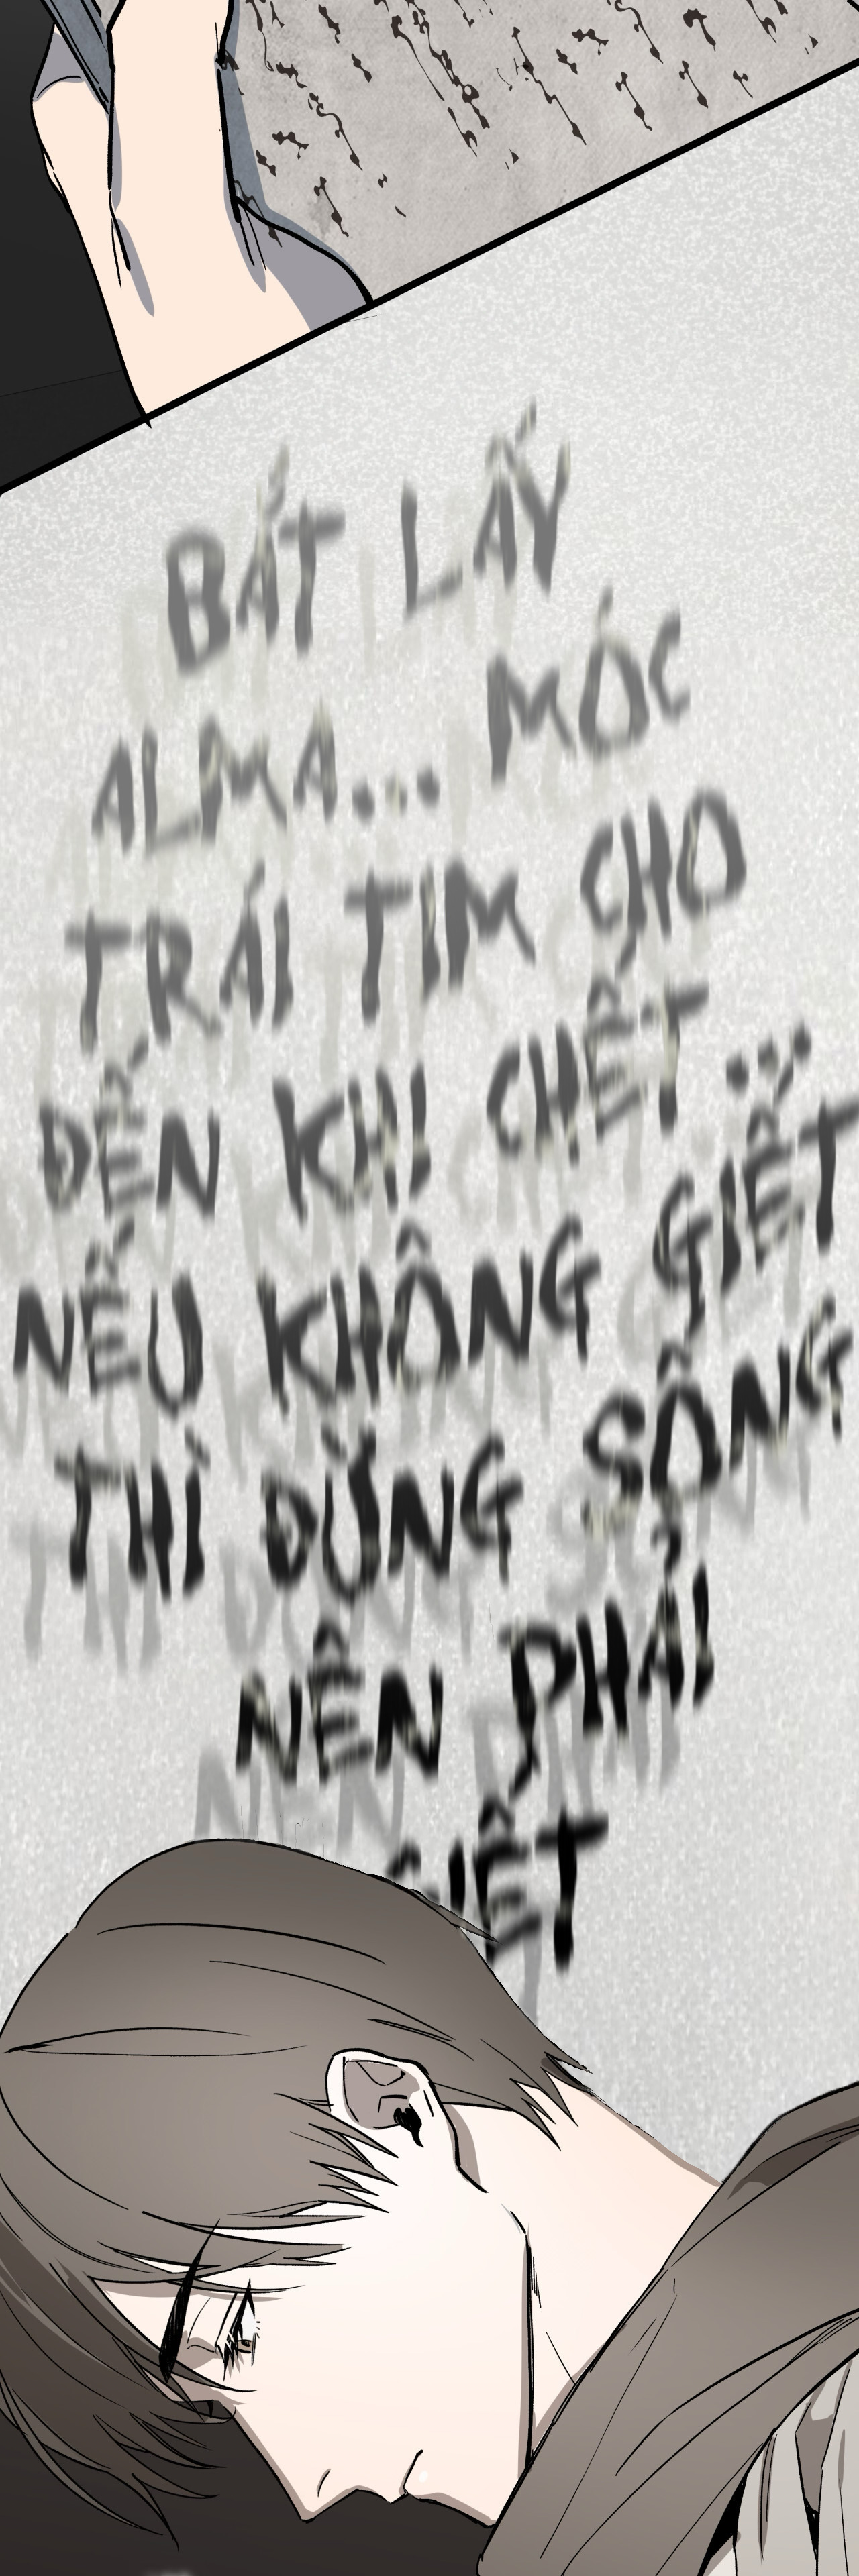 BẮT LẤY
ALMA... MÓC
TRÁI TIM CHO
ĐẾN KHI CHẾT...
NẾU KHÔNG GIẾT
THÌ ĐỪNG SỐNG
NÊN PHẢI
GIẾT